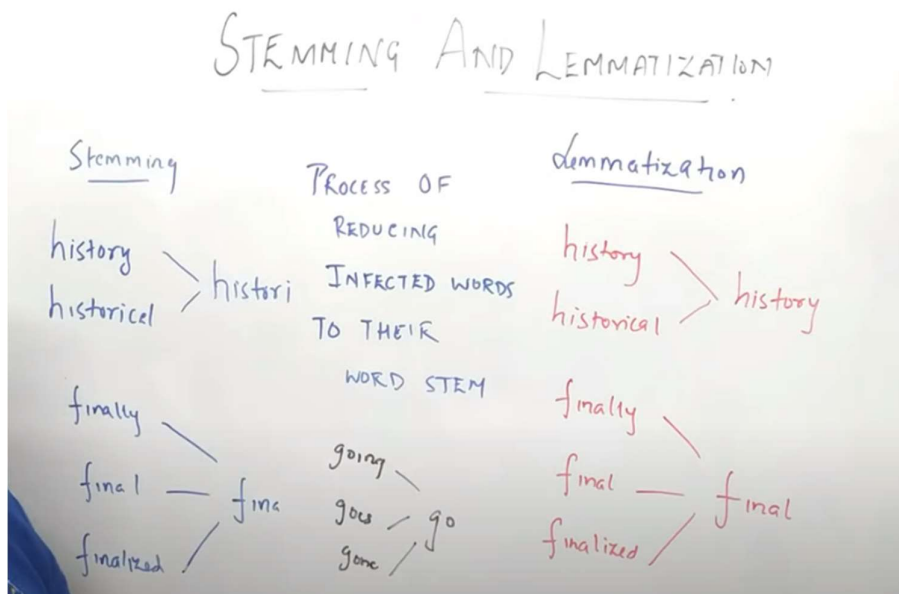 STEMMING AND LEMMATIZATION
Stemming
history
historicel
histori
finally
final
finalized
fina
PROCESS OF
REDUCING
INFECTED WORDS
TO THEIR
WORD STEM
going
goes
gone
go
Lemmatization
history
historical
history
finally
final
finalized
final